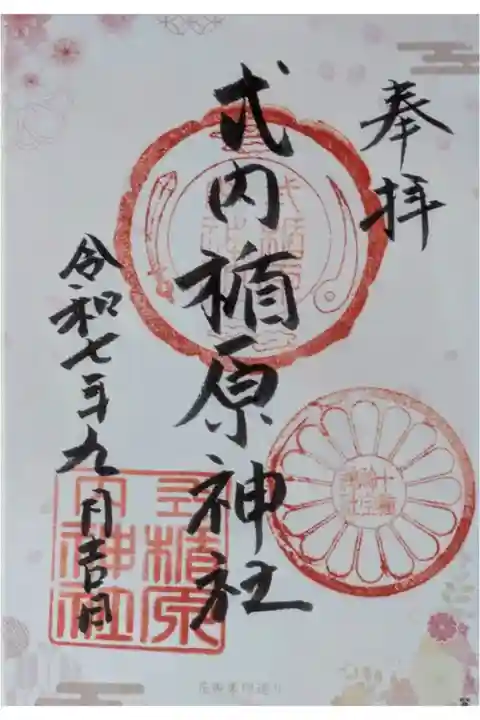 奉拝
式内楯原神社
令和七年九月吉日
式内楯原神社